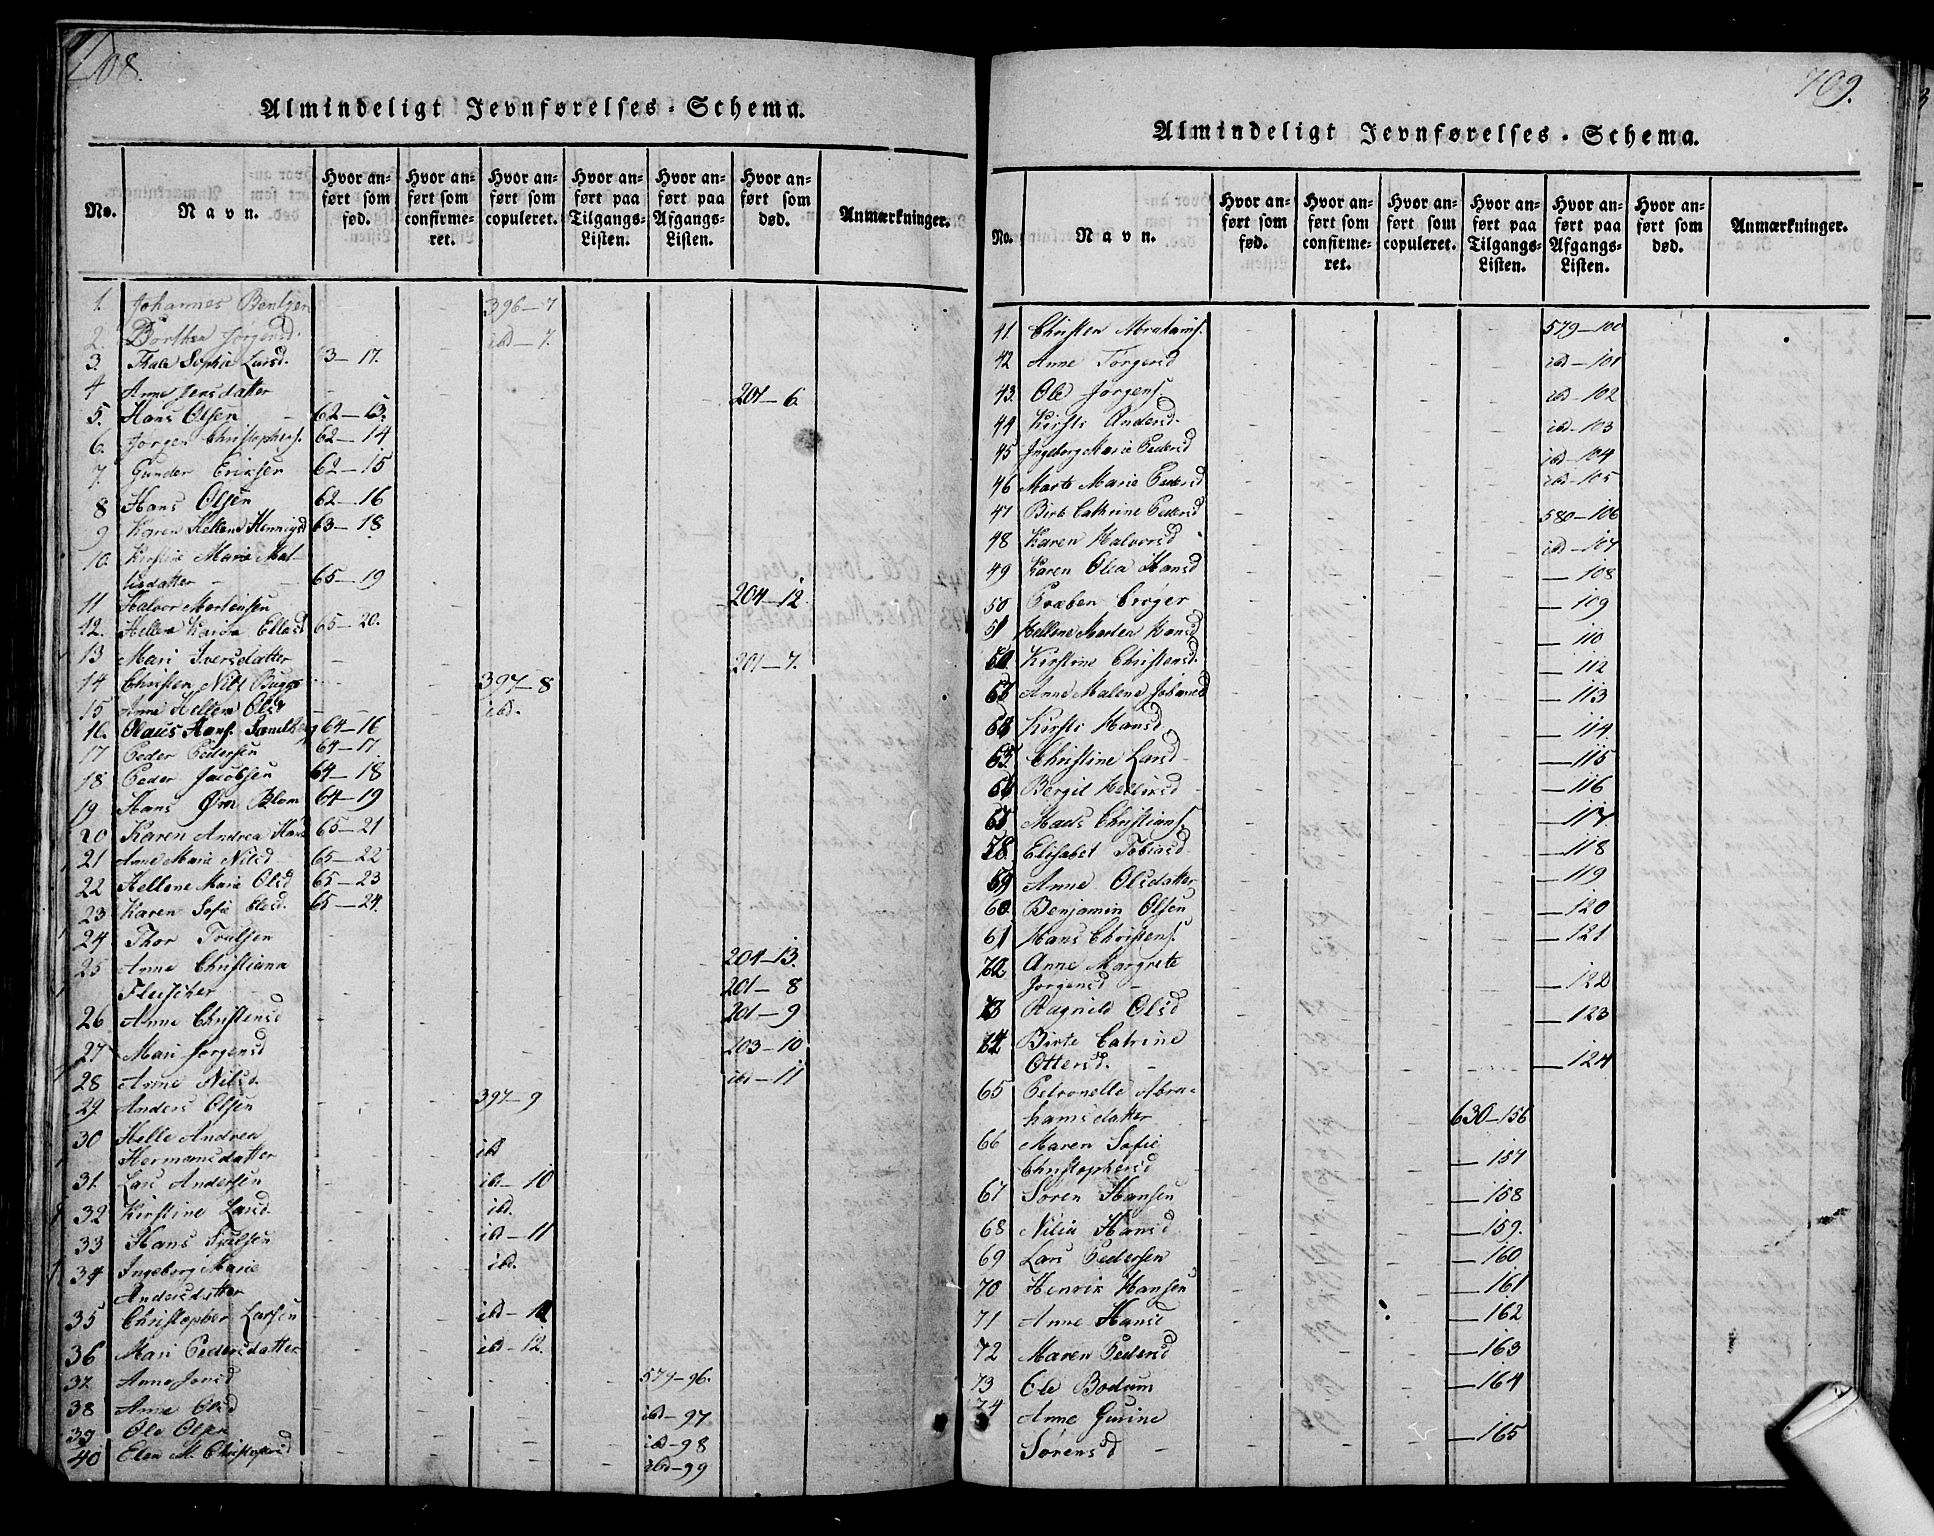 708.
Almindeligt Jevnførelses-Schema.
No.
Navn.
Hvor anført som fød.
Hvor anført som confirmeret.
Hvor anført som copuleret.
Hvor anført paa Tilgangs-Listen.
Hvor anført paa Afgangs-Listen.
Hvor anført som død.
Anmærkninger.
1. Johannes Bentzen 396-7
2. Borthea Jørgensd. ibd-7.
3. Thale Sophie Larsd. 63-17.
4 Anne Jensdatter 201-6
5. Hans Olsen 62-13.
6. Jørgen Christophers. 62-14
7. Gunder Eriksen 62-15
8 Hans Olsen 62-16
9 Karen Hellene Hennigsd 63-18
10. Kirstine Maria Mal-
lisdatter 65-19
11 Halvor Mortensen 204-12.
12. Hellene Karine Ellesd 65-20.
13 Mari Iversdatter 201-7.
14 Christen Nils Bugge 397-8
15 Anne Hellene Olsd ibd.
16. Olaus Hans. 64-16
17 Peder Pedersen 64-17.
18 Peder Jacobsen 64-18
19 Hans Ørn Blom 64-19
20 Karen Andrea Hans 65-21
21 Anne Marie Nilsd 65-22
22 Hellene Marie Olsd 65-23
23 Karen Sofie Olsd. 65-24.
24 Thor Trulsen 204-13.
25 Anne Christiana
Fleischer 201-8
26 Anne Christensd 201-9
27 Mari Jørgensd 203-10
28 Anne Nilsd. ibd-11
29 Anders Olsen 397-9
30 Helle Andrea
Hermansdatter ibd
31. Lars Andersen ibd-10
32 Kirstine Larsd. ibd.
33 Hans Truelsen ibd-11
34 Ingeborg Marie
Andersdatter ibd.
35 Christopher Larsen ibd-12
36 Mari Pedersdatter ibd-12.
37. Anne Jonsd 579-96.
38 Anne Olsd ibd-97
39 Ole Olsen ibd-98
40 Elen M. Christophersd ibd-99
709.
Almindeligt Jevnførelses-Schema.
No.
Navn.
Hvor anført som fød.
Hvor anført som confirmeret.
Hvor anført som copuleret.
Hvor anført paa Tilgangs-Listen.
Hvor anført paa Afgangs-Listen.
Hvor anført som død.
Anmærkninger.
41. Christen Abrahams. 579-100
42 Anne Torgersd ibd-101
43. Ole Jørgens. ibd-102
44 Kirsti Andersd. ibd-103
45 Ingeborg Marie Pedersd ibd-104
46 Marte Marie Pedersd ibd-105
47 Birte Cathrine Pedersd 580-106
48 Karen Halvorsd ibd-107
49 Karen Olea Hansd -108
50 Præben Crøger -109
51 Hellene Marten Hansd -110
Kirstine Christensd. -112
53 Anne Malene Johansd -113
Kirsti Hansd -114
55 Christine Larsd -115
Bergit -116
Mads Christians. -117
58 Elisabet Tobiasd -118
59 Anne Olsdatter -119
60 Benjamin Olsen -120
61 Hans Christens. -121
62 Anne Margrete
Jørgensd -122
63 Ragnild Olsd -123
64 Birte Catrine
Ottersd. -124
65 Petronelle Abra-
hamsdatter 630-156
66 Maren Sofie
Christophersd -157
67 Søren Hansen -158
68 Nilia Hansd -159.
69 Lars Pedersen -160
70 Henrik Hansen -161
71 Anne Hansd -162
72 Maren Pedersd -163
73 Ole Bodum -164
74 Anne Gurine
Sørensd -165